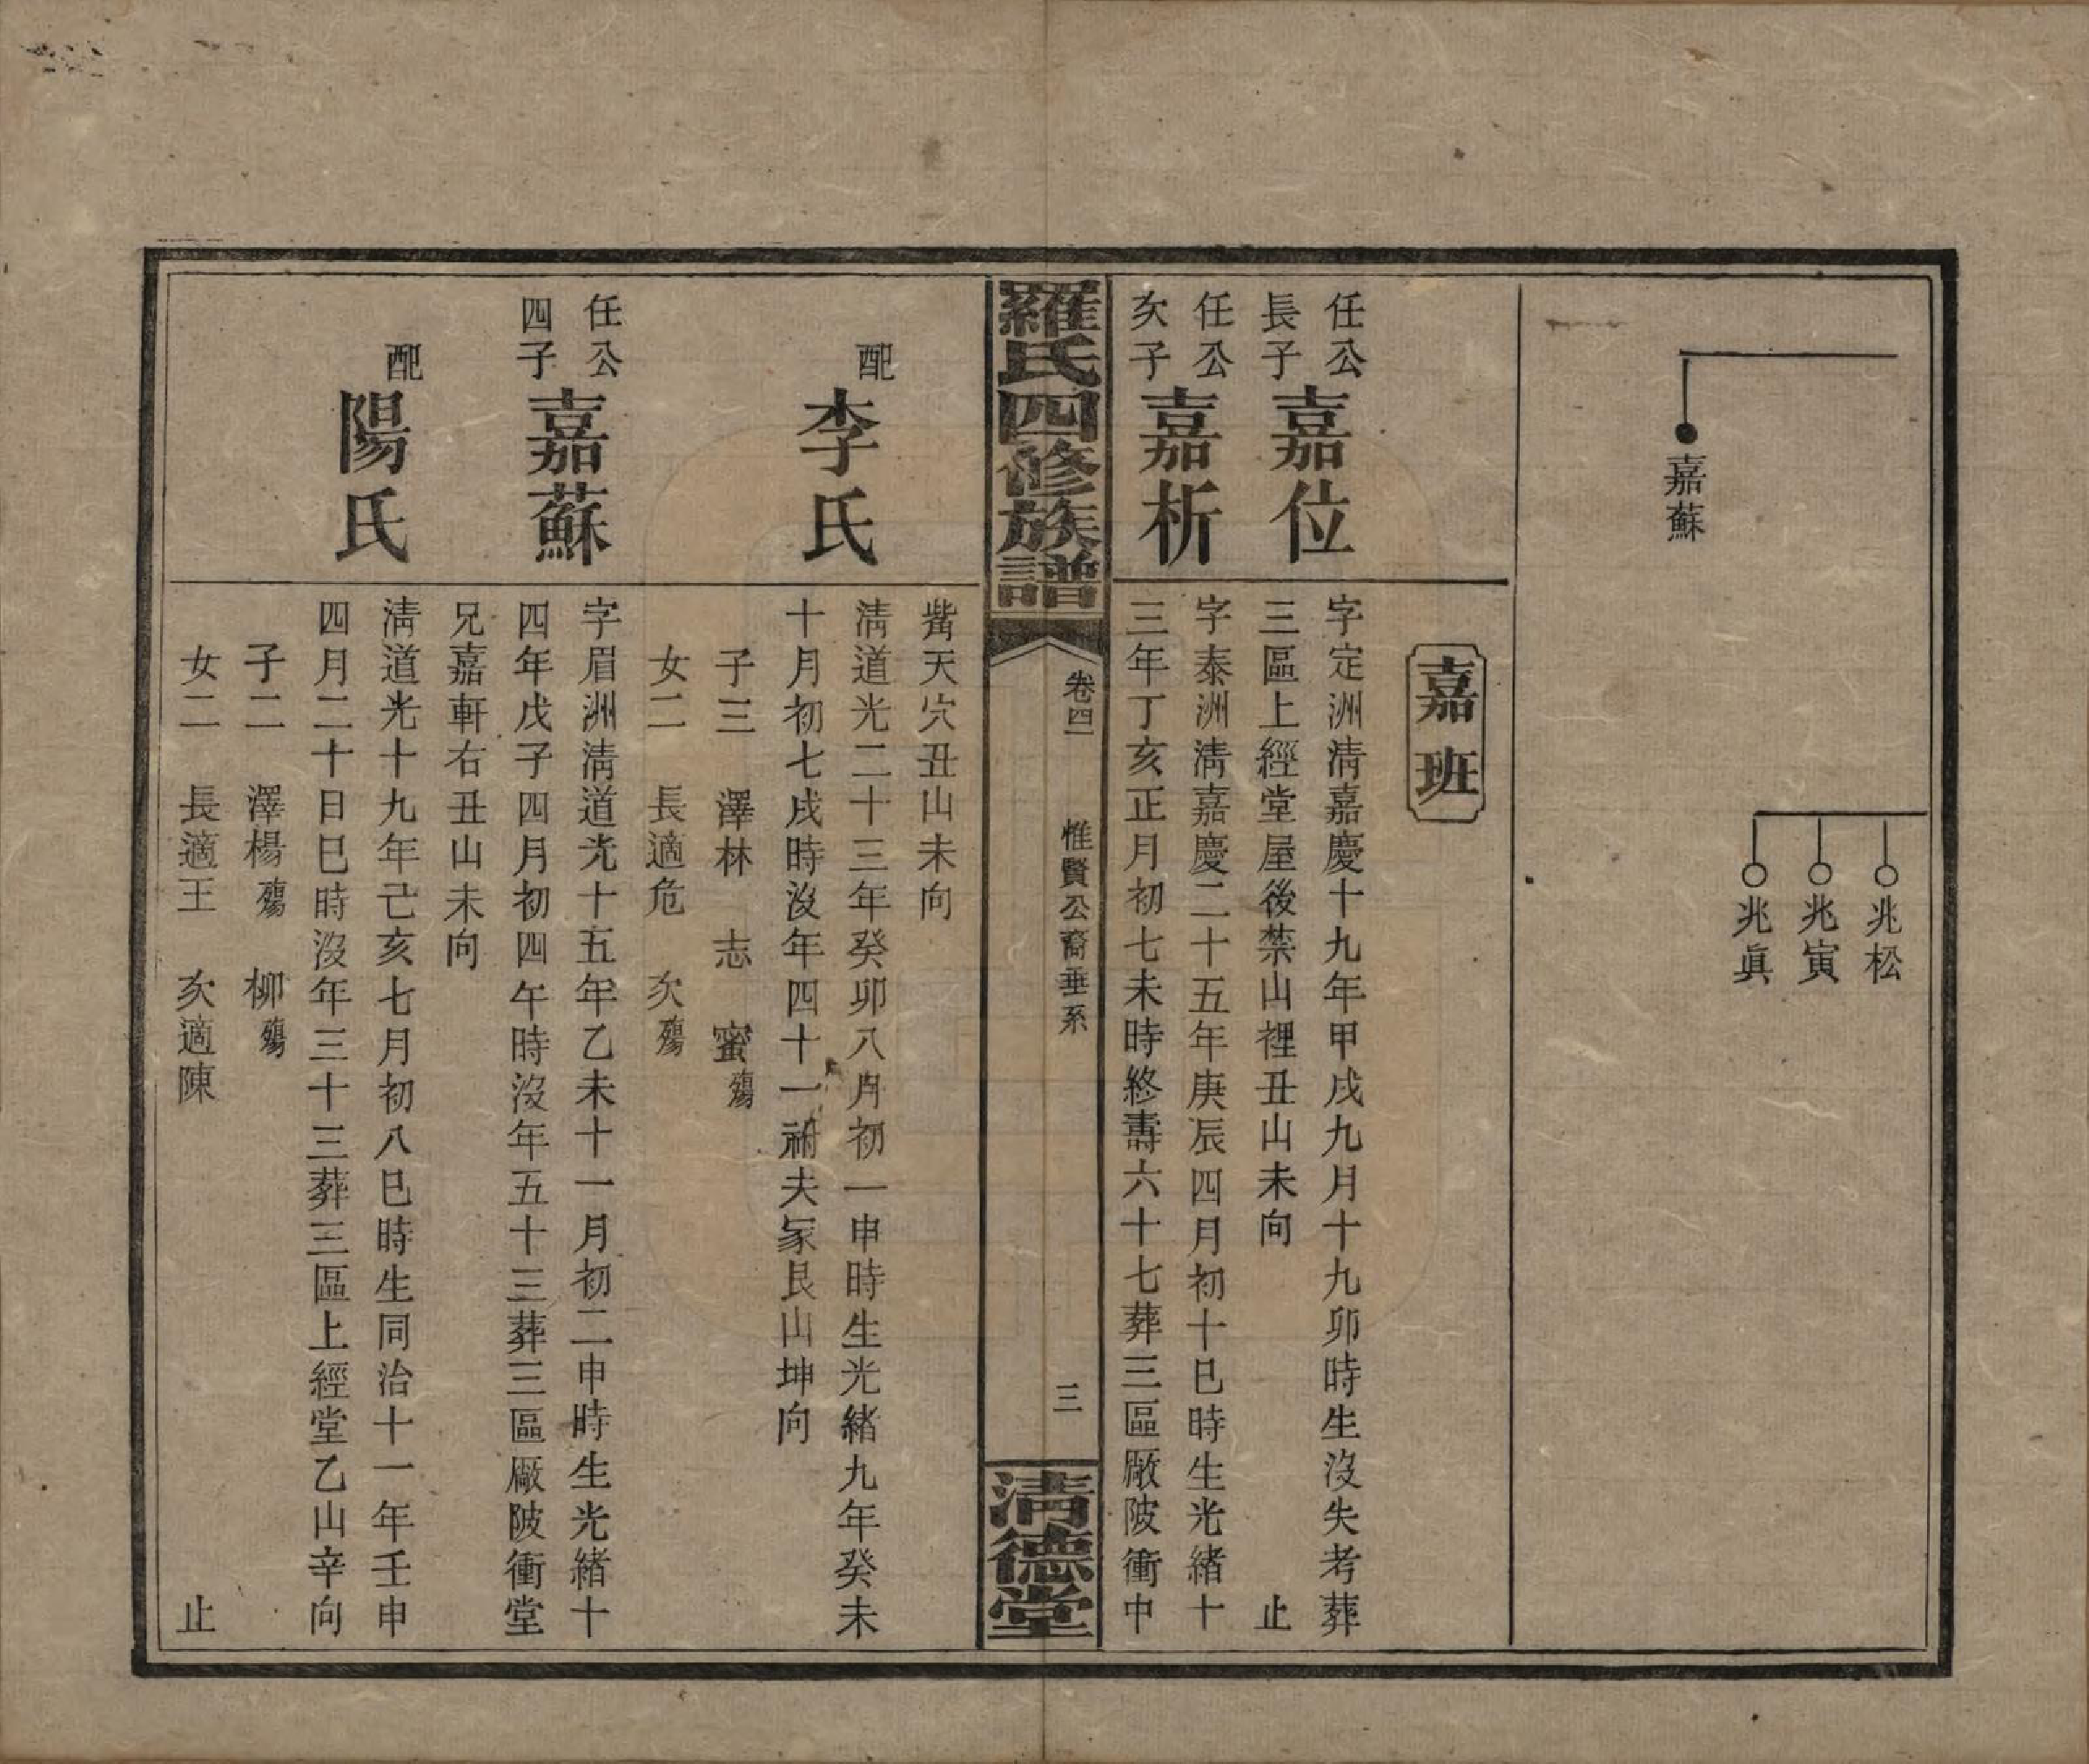 嘉蘇
兆松
兆寅
兆眞
嘉班
任公長子
嘉位
字定洲淸嘉慶十九年甲戌九月十九卯時生沒失考葬
三區上經堂屋後禁山裡丑山未向 止
任公次子
嘉析
字泰洲淸嘉慶二十五年庚辰四月初十巳時生光緒十
三年丁亥正月初七未時終壽六十七葬三區厰陂衝中
羅氏四修族譜
卷四
惟賢公裔垂系
三
淸德堂
觜天穴丑山未向
配
李氏
淸道光二十三年癸卯八月初一申時生光緒九年癸未
十月初七戌時沒年四十一祔夫冢艮山坤向
子三 澤林 志 蜜殤
女二 長適危 次殤
任公四子
嘉蘇
字眉洲淸道光十五年乙未十一月初二申時生光緒十
四年戊子四月初四午時沒年五十三葬三區厰陂衝堂
兄嘉軒右丑山未向
配
陽氏
淸道光十九年己亥七月初八巳時生同治十一年壬申
四月二十日巳時沒年三十三葬三區上經堂乙山辛向
子二 澤楊殤 柳殤
女二 長適王 次適陳 止